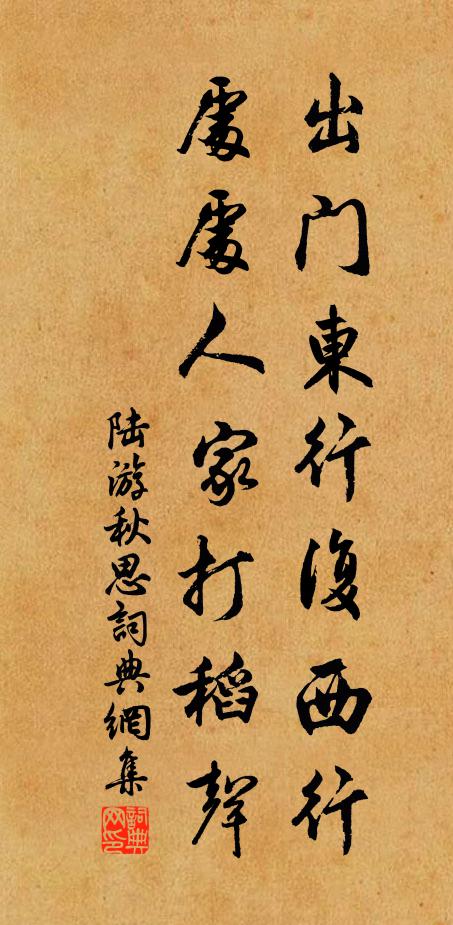 出門東行復西行
處處人家打稻聲
陸游秋思詞典網集
詞典網印